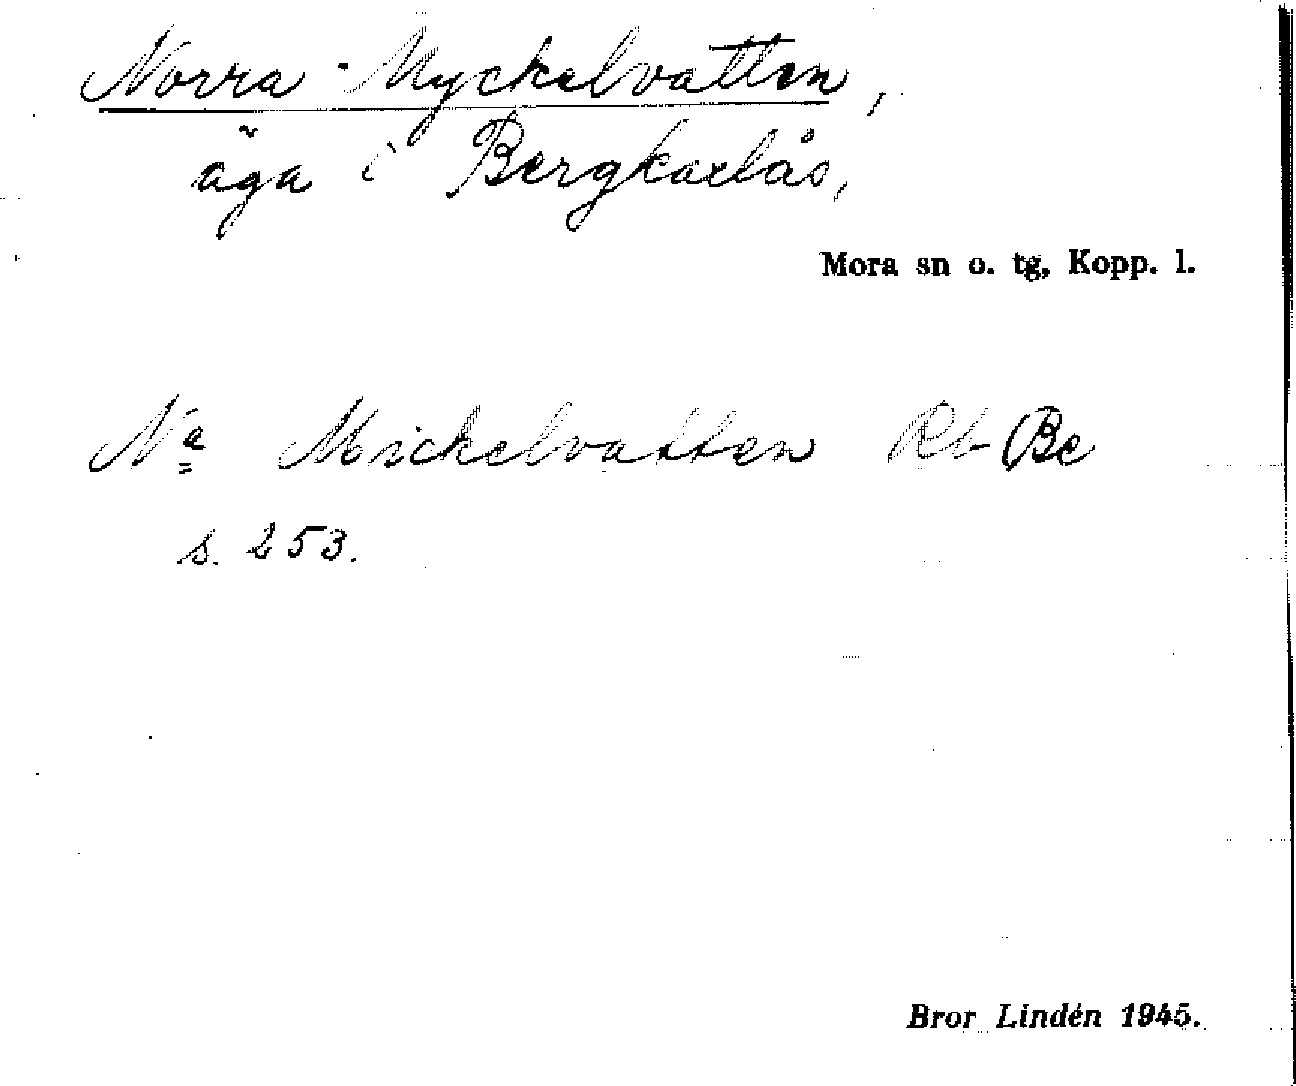 Norra Myckelvatten,
äga i Bergkarlås,
Mora sn o. tg, Kopp. l.
Na Mickelvatten Rb Be
s. 253.
Bror Lindén 1945.